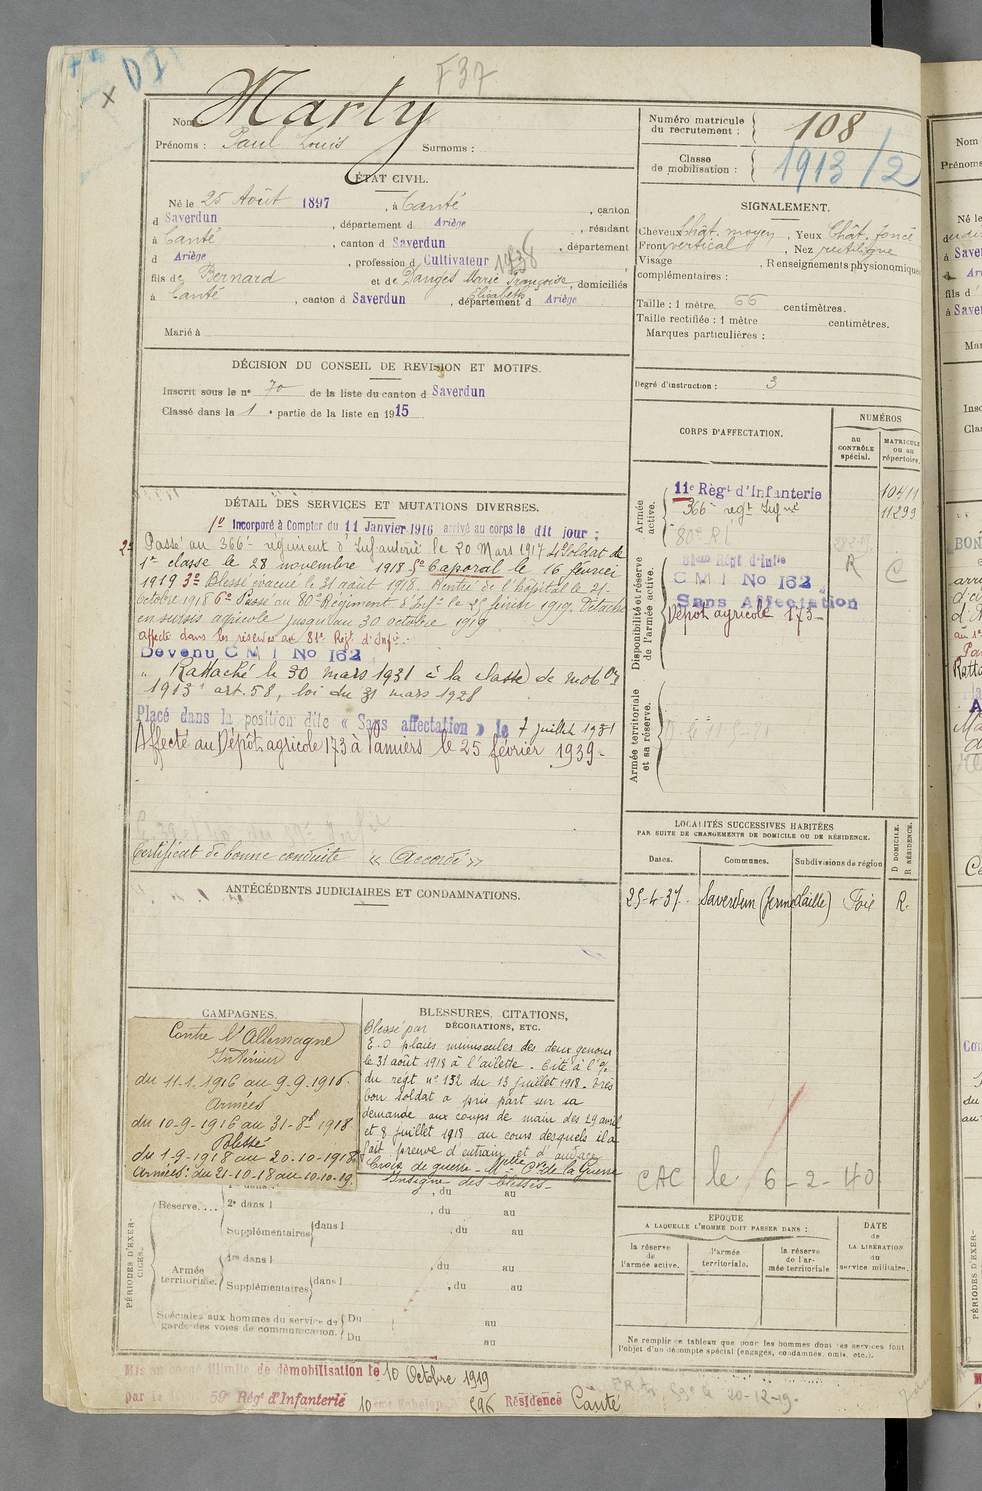 F37
× DI
Nom Marty
Prénoms : Paul Louis Surnoms :
Numéro matricule du recrutement : 108
Classe de mobilisation : 1913/2
ÉTAT CIVIL.
Né le 25 Août 1897, à Canté, canton
d Saverdun, département d Ariège, résidant
à Canté, canton d Saverdun, département
d Ariège, profession d Cultivateur 1938
fils de Bernard et de Danges Marie Françoise Elisabeth, domiciliés
à Canté, canton d Saverdun, département d Ariège
Marié à
SIGNALEMENT.
Cheveux Chât. moyen, Yeux Chât. foncé
Front vertical, Nez rectiligne
Visage, Renseignements physionomiques
complémentaires :
Taille : 1 mètre 66 centimètres.
Taille rectifiée : 1 mètre centimètres.
Marques particulières :
Degré d'instruction : 3
DÉCISION DU CONSEIL DE REVISION ET MOTIFS.
Inscrit sous le n° 70 de la liste du canton d Saverdun
Classé dans la 1e partie de la liste en 1915
DÉTAIL DES SERVICES ET MUTATIONS DIVERSES.
1° Incorporé à Compter du 11 Janvier 1916 arrivé au corps le dit jour ;
2° Passé au 366e régiment d'Infanterie le 20 Mars 1917 4° Soldat de
1re classe le 28 novembre 1918 5° Caporal le 16 février
1919 3° Blessé évacué le 31 août 1918. Rentré de l'hôpital le 21
Octobre 1918 6° Passé au 80e Régiment d'Infie le 25 février 1919. Détaché
en sursis agricole jusqu'au 30 octobre 1919
affecté dans les réserves au 81e Régt d'Infie.
Devenu C M I No 162
Rattaché le 30 mars 1931 à la classe de mobon
1913 art. 58, loi du 31 mars 1928
Placé dans la position dite « Sans affectation » le 7 juillet 1931
Affecté au Dépôt agricole 173 à Pamiers le 25 février 1939-
Certificat de bonne conduite « Accordé »
CORPS D'AFFECTATION.
NUMÉROS
au CONTRÔLE spécial.
MATRICULE ou au répertoire.
Armée active.
11e Régt d'Infanterie 10411
366e regt Infie 11299
80e RI
Disponibilité et réserve de l'armée active.
81eme Régt d'Infie R C
C M I No 162
Sans Affectation
Dépôt agricole 173-
Armée territoriale et sa réserve.
LOCALITÉS SUCCESSIVES HABITÉES
PAR SUITE DE CHANGEMENTS DE DOMICILE OU DE RÉSIDENCE.
Dates. Communes. Subdivisions de région D DOMICILE. R RÉSIDENCE.
25-4-37. Saverdun (ferme Laille) Foix R.
CAC le 6-2-40
ANTÉCÉDENTS JUDICIAIRES ET CONDAMNATIONS.
CAMPAGNES.
Contre l'Allemagne
Intérieur
du 11.1.1916 au 9-9-1916.
Armées
du 10-9-1916 au 31-8-1918
Blessé
du 1-9-1918 au 20-10-1918.
Armées : du 21-10-18 au 10-10-19.
BLESSURES, CITATIONS, DÉCORATIONS, ETC.
Blessé par
E. O plaies minuscules des deux genoux
le 31 août 1918 à l'ailette. Cité à l'O/
du régt n° 152 du 13 juillet 1918. très
bon soldat a pris part sur sa
demande aux coups de main des 29 avril
et 8 juillet 1918 au cours desquels il a
fait preuve d'entrain et d'audace
Croix de guerre - Mlle Cve de la Guerre
Insigne des blessés-
PÉRIODES D'EXERCICES.
, du au
Réserve.... 2e dans l , du au
Supplémentaires dans l , du au
Armée territoriale. 1re dans l , du au
Supplémentaires dans l , du au
Spéciales aux hommes du service de garde des voies de communication. Du au
Du au
EPOQUE
A LAQUELLE L'HOMME DOIT PASSER DANS :
la réserve de l'armée active.
l'armée territoriale.
la réserve de l'armée territoriale
DATE de LA LIBÉRATION du service militaire.
Ne remplir ce tableau que pour les hommes dont les services font
l'objet d'un décompte spécial (engagés, condamnés, omis, etc.).
Mis en congé illimité de démobilisation le 10 Octobre 1919
par le 59e Régt d'Infanterie 10eme Echelon N 596 Résidence Canté
20-12-19-